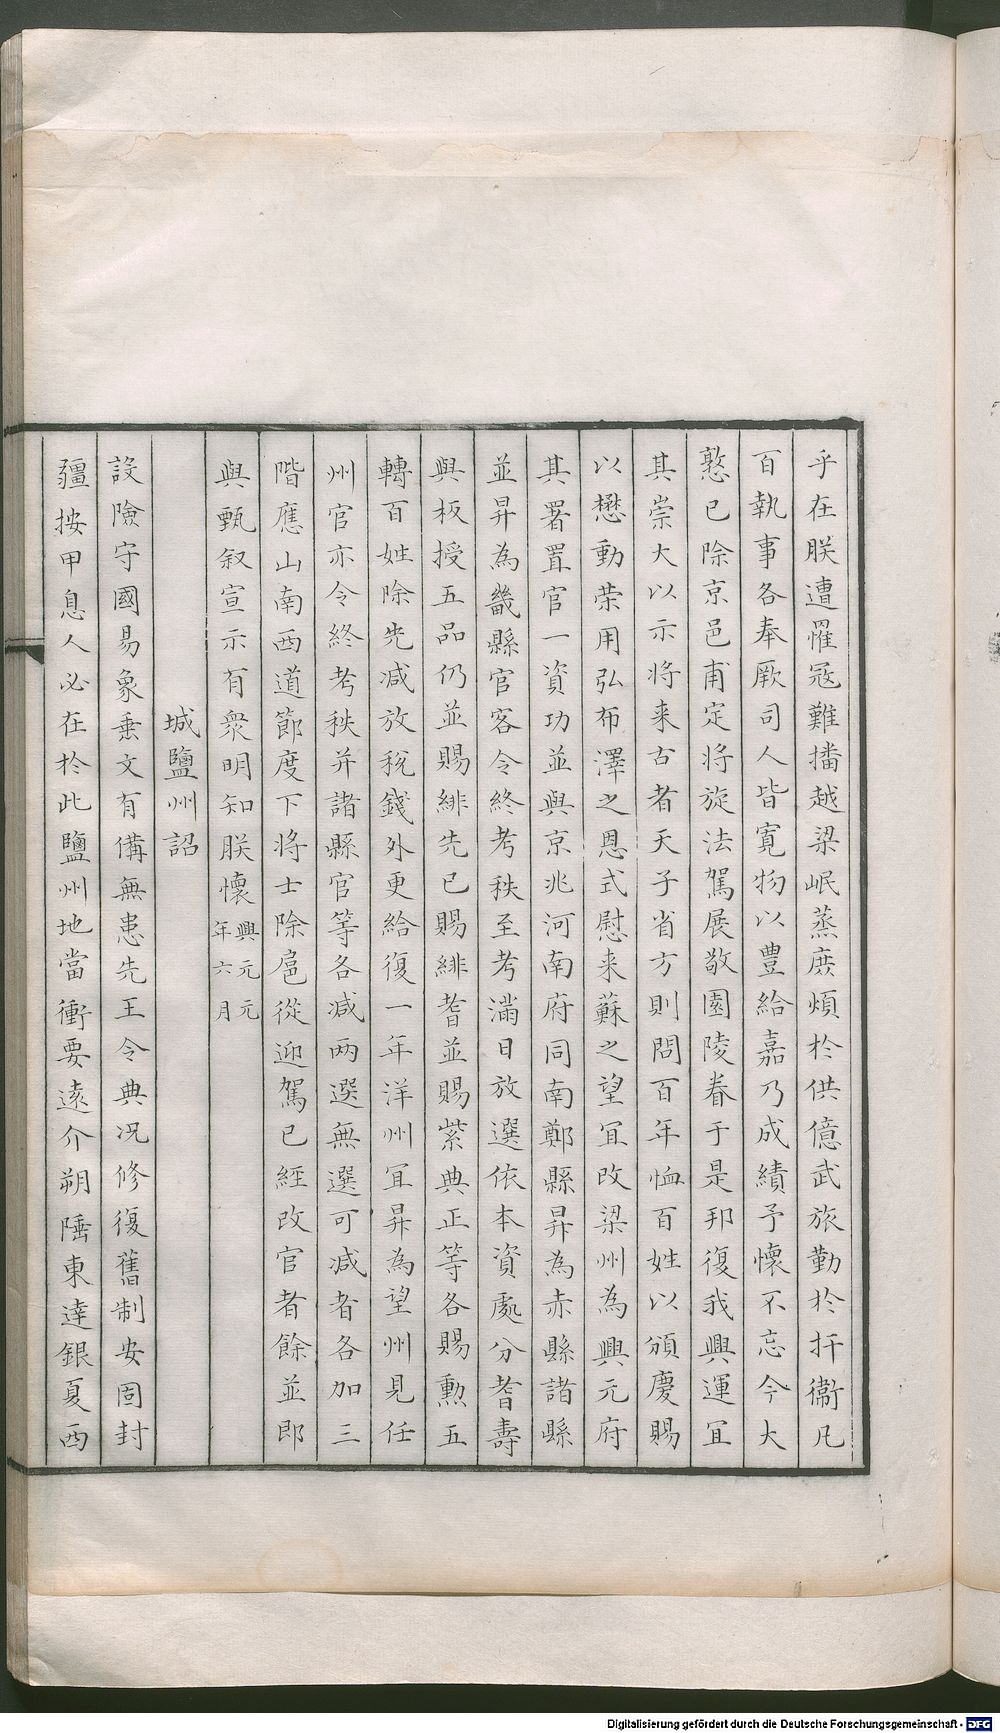 乎在朕遭罹冦難播越梁岷蒸庶煩於供億武旅勤於扞衞凡
百執事各奉厥司人皆寛物以豐給嘉乃成績予懷不忘今大
憝已除京邑甫定将旋法駕展敬園陵眷于是邦復我興運宜
其崇大以示将来古者天子省方則問百年恤百姓以頒慶賜
以懋勳荣用弘布澤之恩式慰来蘇之望宜改梁州為興元府
其署置官一資功並與京兆河南府同南鄭縣昇為赤縣諸縣
並昇為畿縣官客令終考秩至考滿日放選依本資處分耆壽
與板授五品仍並賜緋先已賜緋者並賜紫典正等各賜勳五
轉百姓除先減放稅錢外更給復一年洋州宜昇為望州見任
州官亦令終考秩并諸縣官等各減两選無選可減者各加三
階應山南西道節度下将士除扈從迎駕已經改官者餘並即
與甄叙宣示有衆明知朕懷興元元年六月
城鹽州詔
設險守國易象垂文有備無患先王令典况修復舊制安固封
疆按甲息人必在於此鹽州地當衝要遠介朔陲東達銀夏西
Digitalisierung gefördert durch die Deutsche Forschungsgemeinschaft - DFG